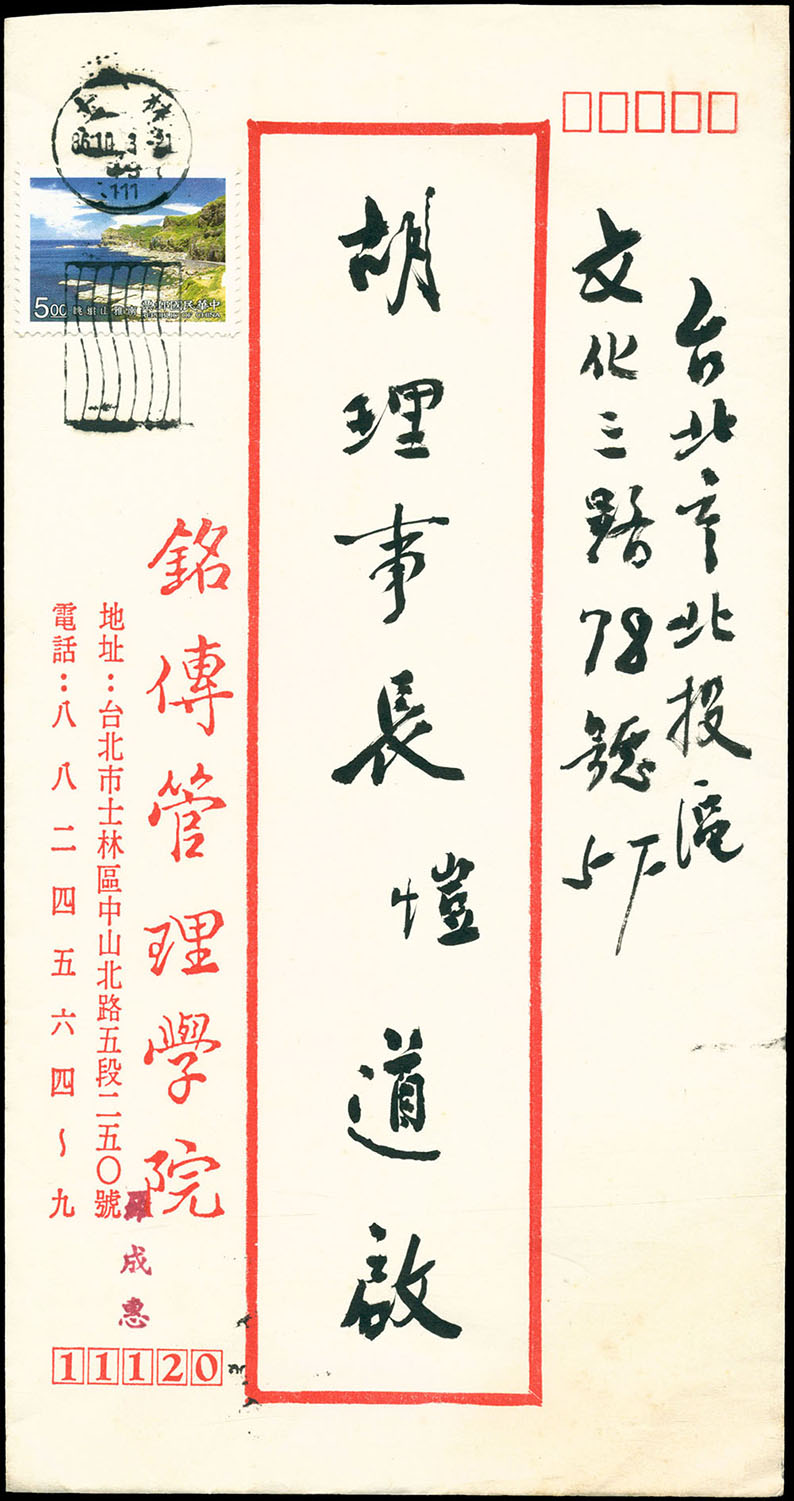 台北市北投區
文化三路78號5F
胡理事長愷道啟
銘傳管理學院
地址：台北市士林區中山北路五段二五〇號
電話：八八二四五六四～九
成惠
11120
士林
86.10.3.21
111
中華民國郵票
REPUBLIC OF CHINA
南雅山
眺
5.00